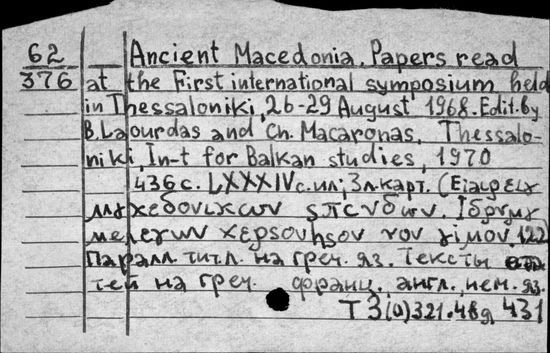 62 Ancient Macedonia. Papers read
376 at the First international symposium held
in Thessaloniki, 26-29 August 1968. Edit. by
B. Laourdas and Ch. Macaronas. Thessalo-
niki, In-t for Balkan studies, 1970
436 с. LXXXIV с. ил; 3 л. карт. (
122
Паралл. титл. на греч. яз. Тексты
тей на греч. франц. англ., нем. яз.
T3(0)321.48я431